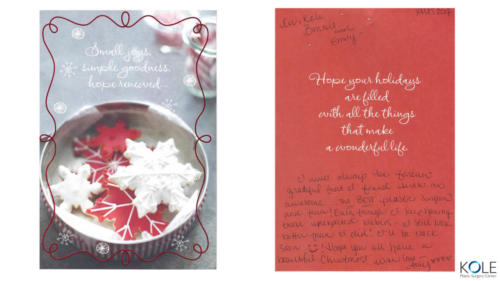 Small joys,
simple goodness,
hope renewed...
Bonnie and
Emily
Hope your holidays
are filled
with all the things
that make
a wonderful life.
I will always be forever
grateful that I found such an
awesome the BEST plastic surgeon
and team! Even though I keep having
these unexpected
better than I did! I'll be back
soon :) Hope you all have a
beautiful Christmas!
KOLE
Plastic Surgery Center